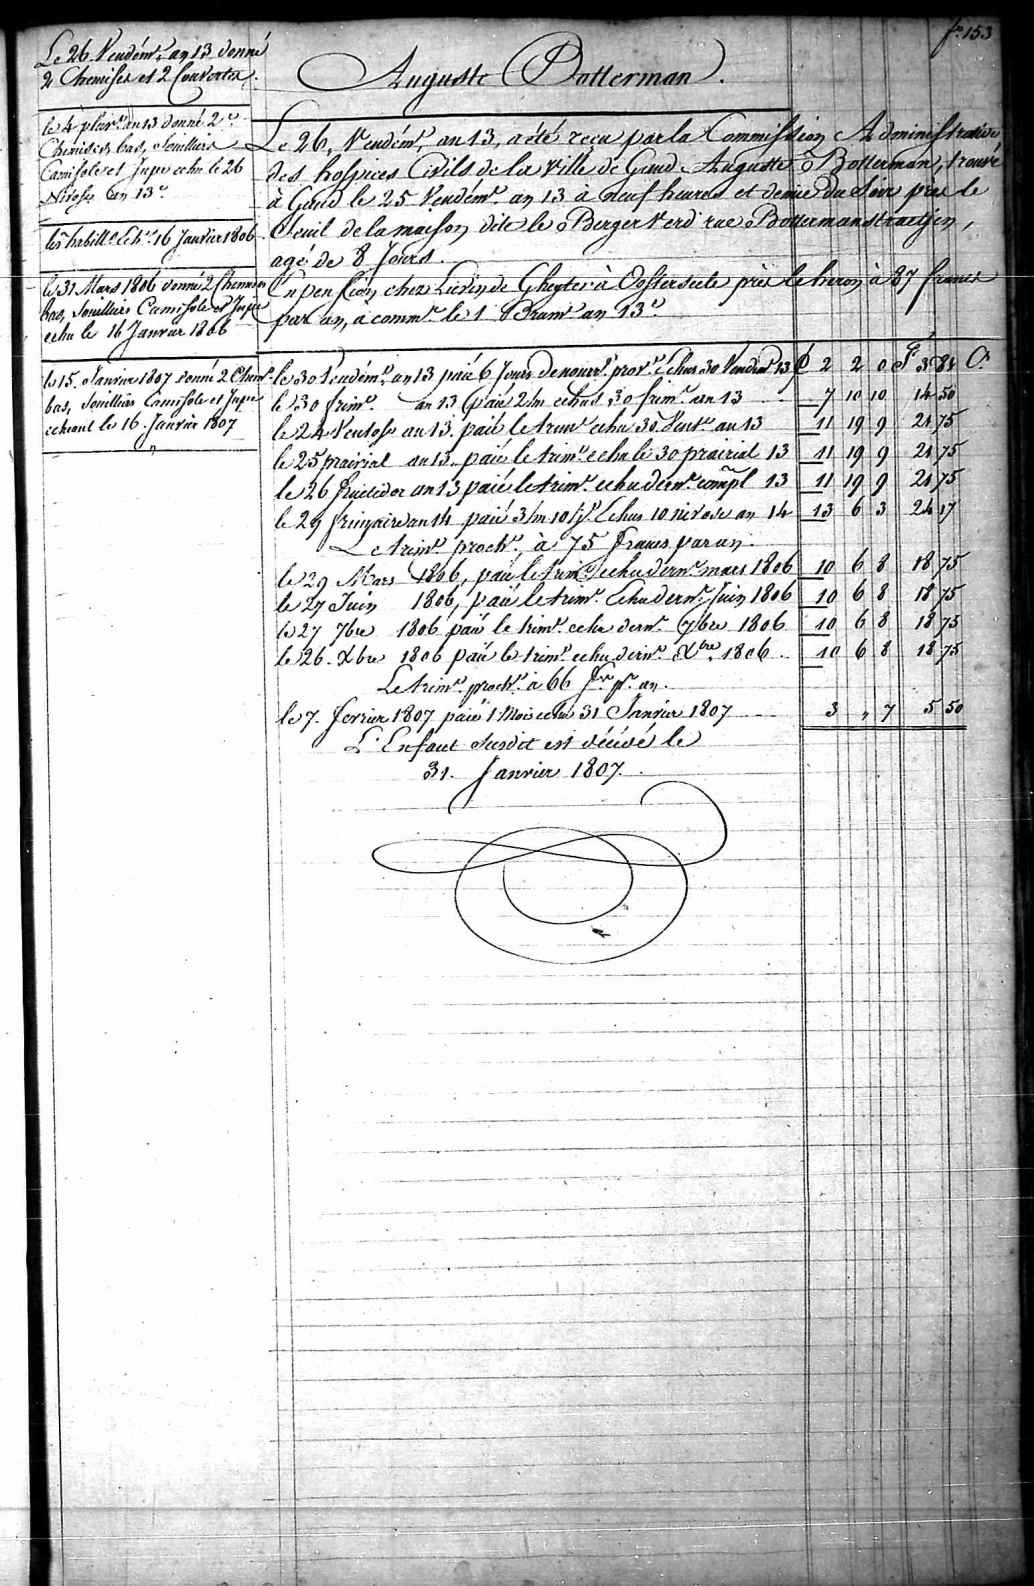 fo 153
Auguste Botterman.
Le 26 Vendémre an 13 donné
2 Chemises et 2 Couvertes.
le 4 pluvse an 13 donné 2
Chemises, bas, Souilliers
Camisole et Jupe echu le 26
Nivose an 13e
habillt Ech. 16 Janvier 1806
le 31 Mars 1806 donné 2 Chemises
bas, Souilliers Camisole et Jupe
echu le 16 Janvier 1806
le 15. Janvier 1807 donné 2 Chems
bas, Souilliers Camisole et Jupe
echeant le 16. Janvier 1807
Le 26, Vendémre an 13, a été reçu par la Commission Administrative
des hospices Civils de la Ville de Gand Auguste Botterman, trouvé
à Gand le 25 Vendemre an 13 à neuf heures et demie du Soir près le
Seuil de la maison dite le Berger Verd rue Bottermanstraetjen,
agé de 8 Jours.
En pension chez Livin de Gheyter à Oosterseele près le heron à 87 francs
par an, a commr le 1 Brumre an 13e
le 30 Vendémre an 13 paié 6 Jours de nourre provre Echus 30 Vendemre 13 £ 2 2 0 F 3 84 C
le 30 frimre an 13 paié 2/m echus 30 frimre an 13 7 10 10 14 50
le 24 Ventose an 13. paié le trimre echu 30 Vente an 13 11 19 9 21 75
le 25 prairial an 13. paié le trimre echu le 30 prairial 13 11 19 9 21 75
le 26 fructidor an 13 paié le trimre echu derne compl 13 11 19 9 21 75
le 29 frimaire an 14 paié 3/m 10 js Echus 10 nivose an 14 13 6 3 24 17
Le trimre prochn à 75 francs par an.
le 29 Mars 1806, paié le trimre echu dernr mars 1806 10 6 8 18 75
le 27 Juin 1806, paié le trimre Echu dernr Juin 1806 10 6 8 18 75
le 27 7bre 1806 paié le trimre echu dernr 7bre 1806 10 6 8 18 75
le 26. Xbre 1806 paié le trimre echu dernr Xbre 1806 10 6 8 18 75
Le trimre prochn à 66 frs pr an.
le 7. fevrier 1807 paié 1 Mois echu 31 Janvier 1807 3 " 7 5 50
L'Enfant Susdit est décédé le
31. Janvier 1807.